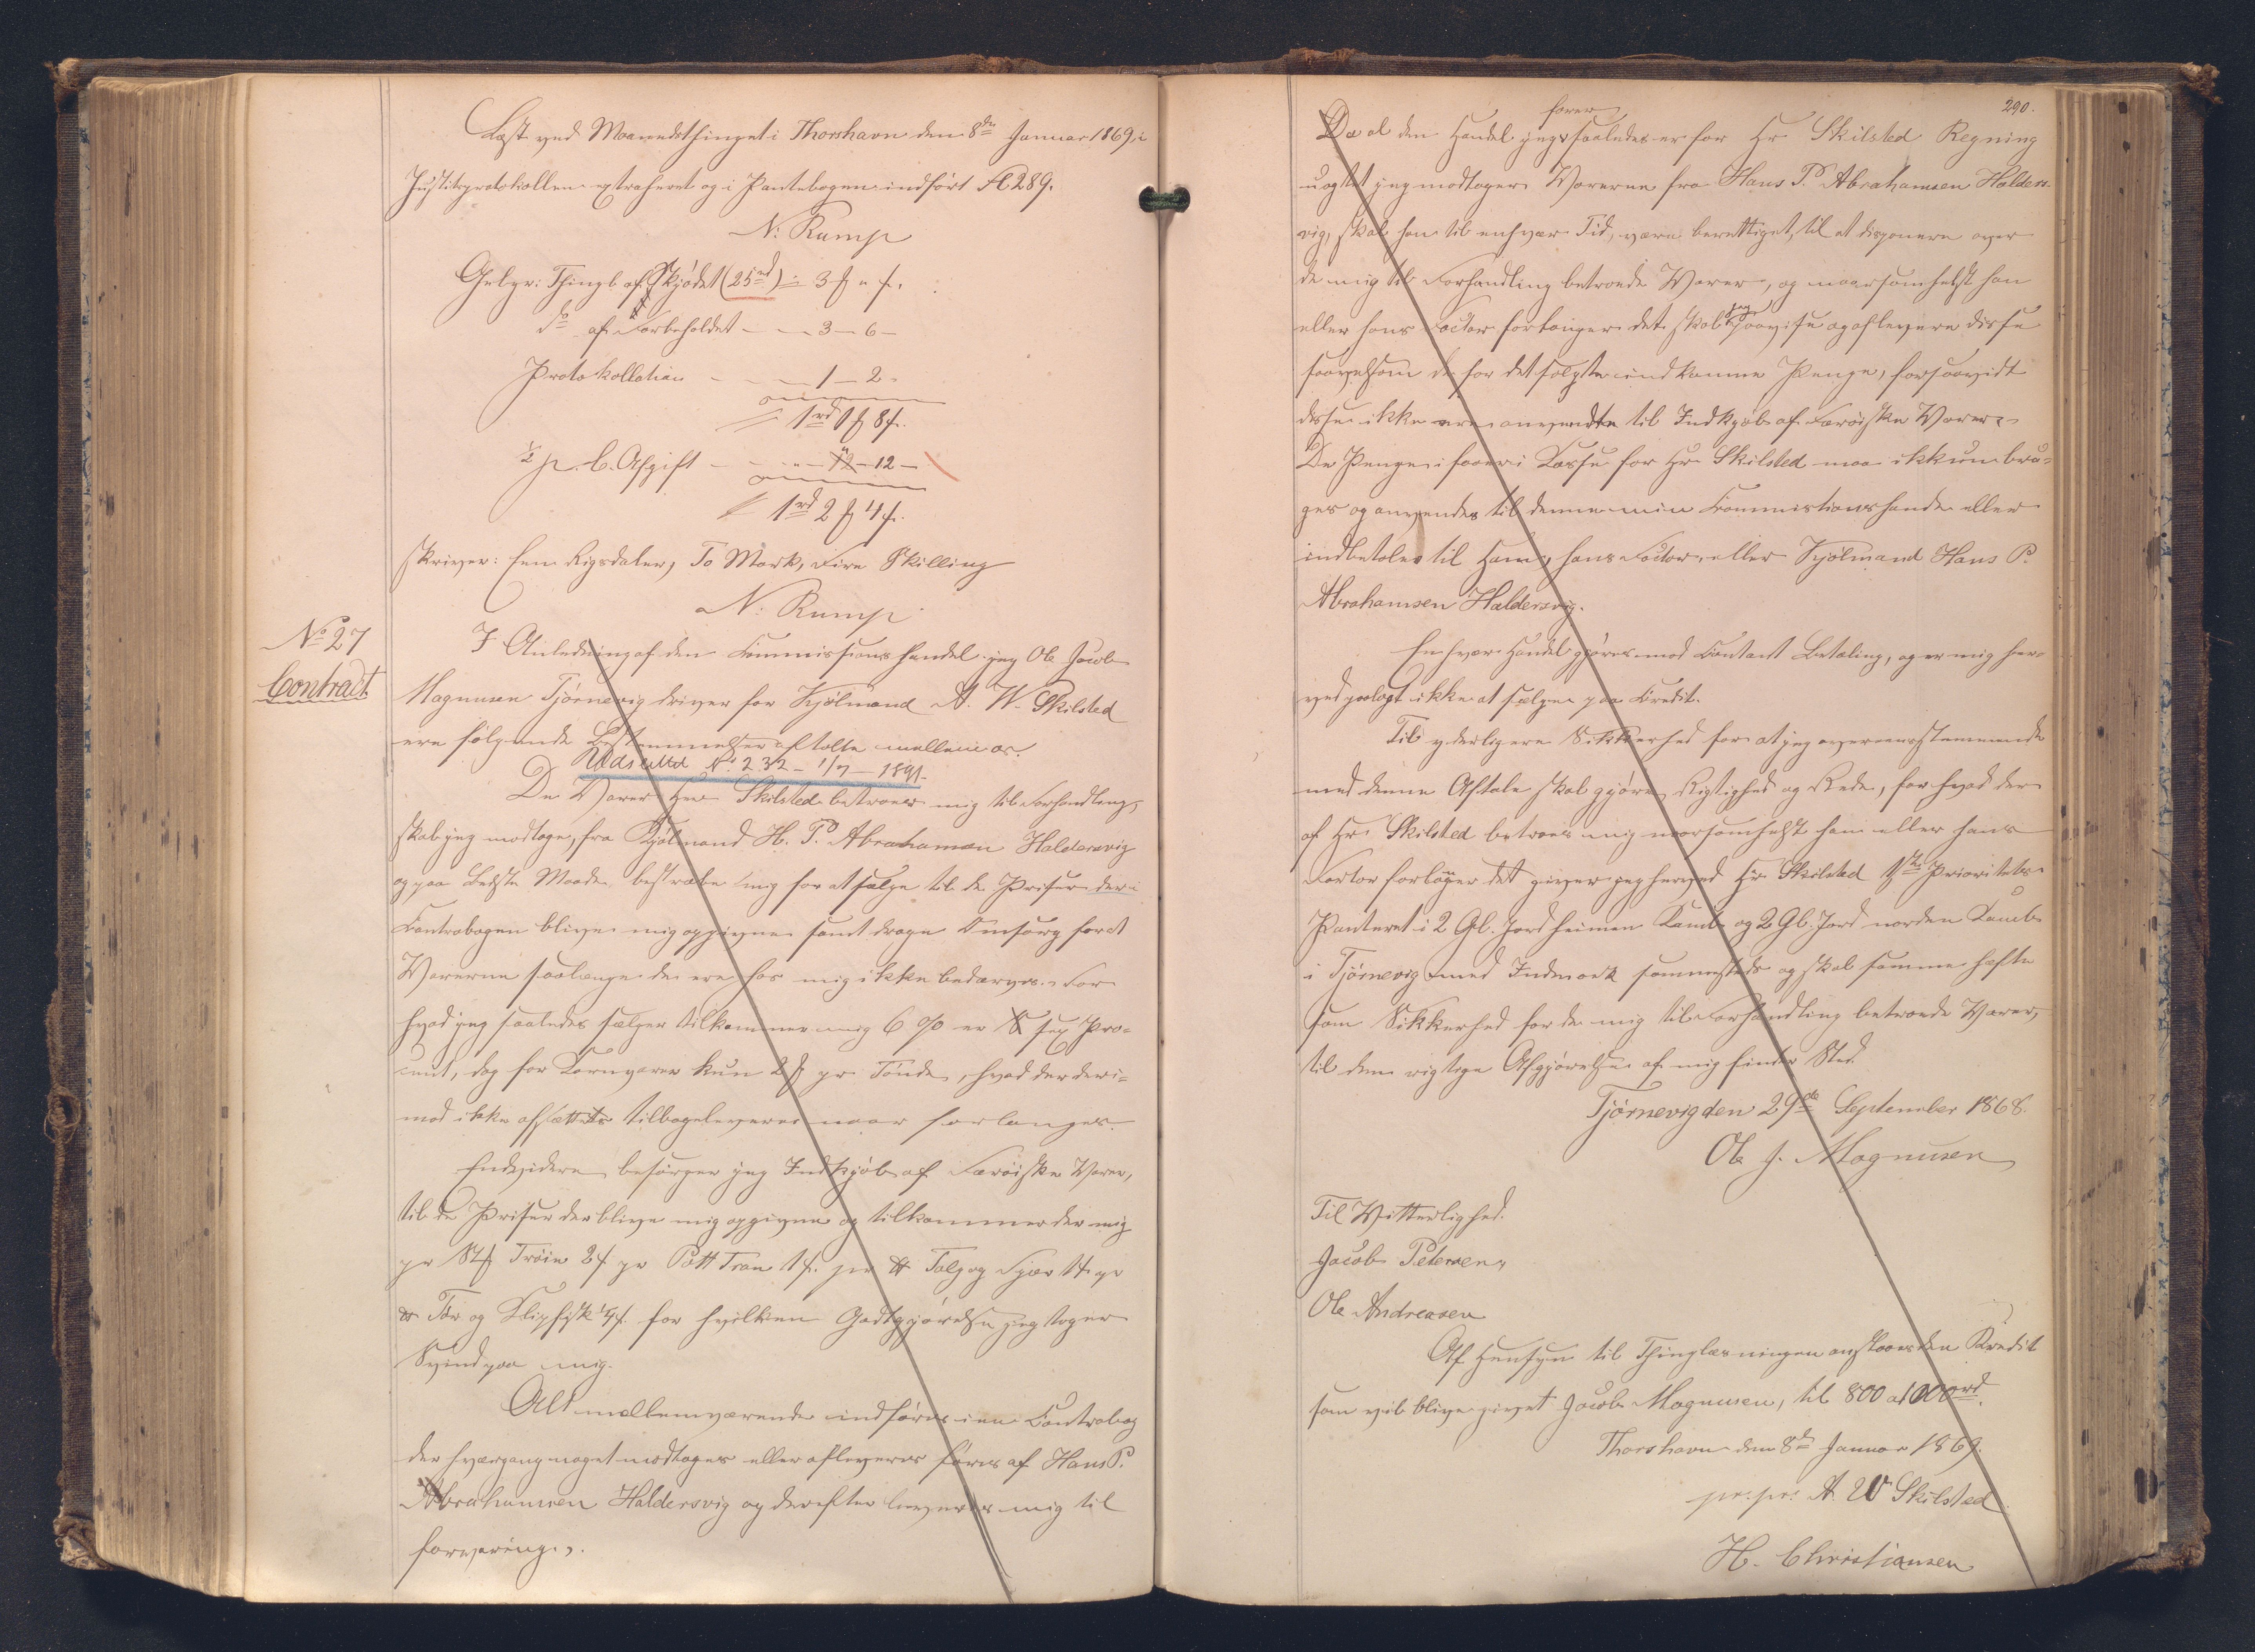 Læst ved Maanedsthinget i Thorshavn den 8de Januar 1869, i
Justitsprotokollen extraheret og i Pantebogen indført Fl 289.
N: Rump
Gebyr: Thingl. af Skjødet (25rd) = 3 ƒ " s.
do af Forbeholdet - - 3 - 6 -
Protokollation - - - 1 - 2 -
1rd 1 ƒ 8 s.
½ p. C. Afgift - - - " - 12 -
1rd 2 ƒ 4 s.
skriver: Een Rigsdaler, To Mark, Fire Skilling
N: Rump
No 27
Contract.
I Anledning af den Commissionshandel jeg Ole Jacob
Magnusen Tjørnevig driver for Kjøbmand A. W. Skilsted
ere følgende Bestemmelser aftalte mellem os.
Udslettet No 232 - 1/7 - 1891.
De Varer Herr Skilsted betroer mig til Forhandling,
skal jeg modtage, fra Kjøbmand H. P. Abrahamsen Haldersvig
og paa bedste Maade bestræbe mig for at sælge til de Priser der i
Contrabogen blive mig opgivne samt drage Omsorg for at
Varerne saalænge de ere hos mig ikke bedærves. For
hvad jeg saaledes sælger tilkommer mig 6 % er sex Pro-
cent, dog for Kornvarer kun 2 ƒ pr Tønde, hvad der deri-
mod ikke afsættes tilbageleveres naar forlanges.
Endvidere besørger jeg Indkjøb af Færøiske Varer,
til de Priser der blive mig opgivne og tilkommer der mig
pr Stk Trøie 2 s pr Pott Tran 1 s. pr ℔ Talg og Fjær 1 s pr
℔ Tør og Klipfisk ¼ s. for hvilken Godtgjørelse jeg tager
Svind paa mig.
Alt mellemværende indføres i en Contrabog
der hvergang noget modtages eller afleveres føres af Hans P.
Abrahamsen Haldersvig og derefter leveres mig til
forvaring.
290.
Da al den Handel jeg fører saaledes er for Hr Skilsted Regning
uagtet jeg modtager Varerne fra Hans P. Abrahamsen Halders-
vig, skal han til enhver Tid, være berettiget, til at disponere over
de mig til Forhandling betroede Varer, og naarsomhelst han
eller hans Factor forlanger det skal jeg forevise og aflevere disse
saavelsom de for det solgte indkomne Penge, forsaavidt
disse ikke ere anvendte til Indkjøb af Færøiske Varer.
De Penge i faaer i Kasse for Hr Skilsted maa ikkun bru-
ges og anvendes til denne min Commissionshandel eller
indbetales til Ham, hans Factor, eller Kjøbmand Hans P.
Abrahamsen Haldersvig.
Enhver Handel gjøres mod Contant Betaling, og er mig her-
ved paalagt ikke at sælge paa Credit.
Til yderligere Sikkerhed for at jeg overeensstemmende
med denne Aftale skal gjøre Rigtighed og Rede, for hvad der
af Hr Skilsted betroes mig naarsomhelst han eller hans
Factor forlanger det giver jeg herved Hr Skilsted 1ste Prioritets
Panteret i 2 Gl. Jord heimen Kamb og 2 Gl. Jord norden Kamb
i Tjørnevig med Indmark sammesteds og skal samme hefte
som Sikkerhed for de mig til Forhandling betroede Varer,
til den rigtige Afgjørelse af mig finder Sted.
Tjørnevig den 29de September 1868.
Ole J. Magnusen
Til Vitterlighed.
Jacob Petersen,
Ole Andreasen
Af Hensyn til Thinglæsningen ansaaes den Kredit
som vil blive givet Jacob Magnusen, til 800 a 1000rd.
Thorshavn den 8de Januar 1869.
pr. pr: A W Skilsted
H. Christiansen